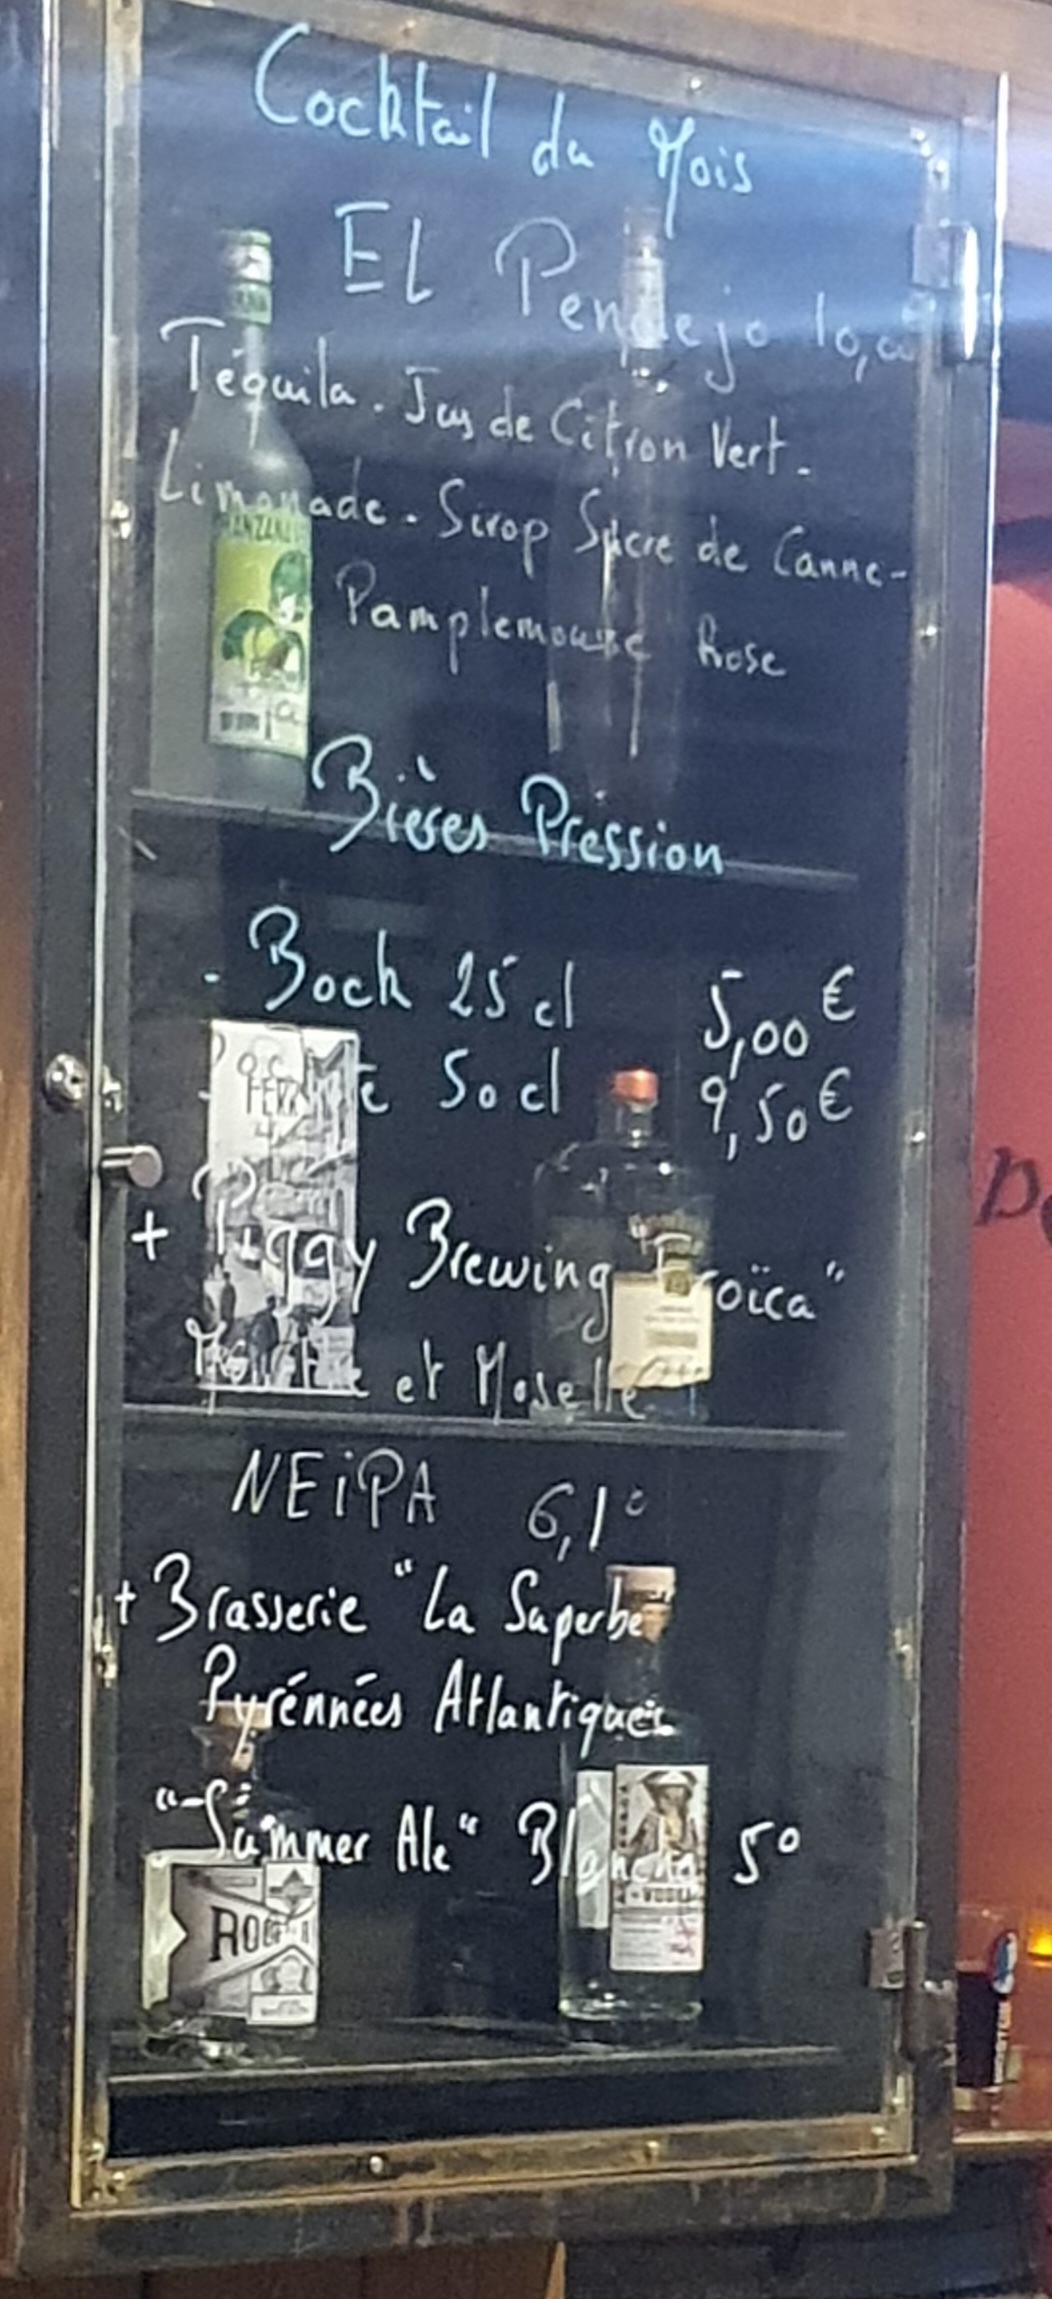 Cocktail du Mois
EL Pendejo 10,00
Téquila. Jus de Citron Vert.
Limonade. Sirop Sucre de Canne-
Pamplemousse Rose
Bières Pression
- Bock 25 cl 5,00€
50 cl 9,50€
+ Piggy Brewing "Eroïca"
et Moselle
NEiPA 6,1°
+ Brasserie "La Superbe"
Pyrénnées Atlantiques
"Summer Ale" Blanche 5°
VODKA